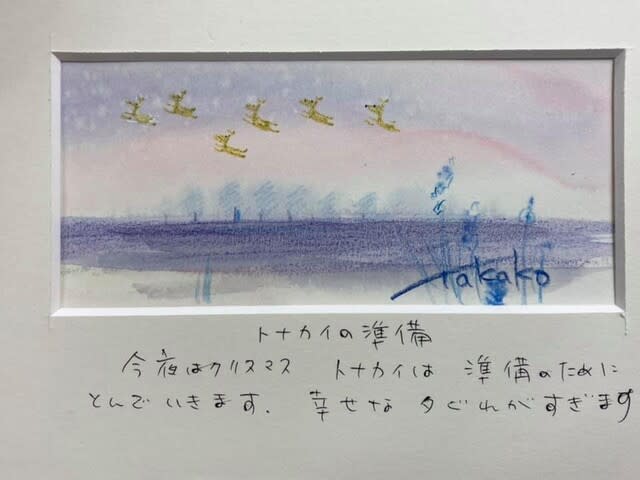 Takako
トナカイの準備
今夜はクリスマス トナカイは 準備のために
とんでいきます. 幸せな 夕ぐれがすぎます